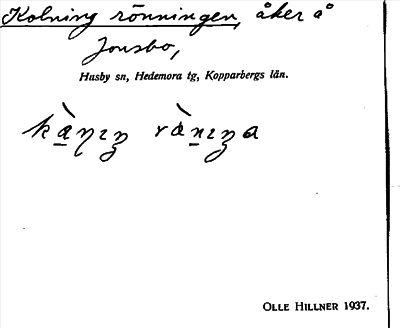 Kolning rönningen, åker å
Jonsbo,
Husby sn, Hedemora tg, Kopparbergs län.
OLLE HILLNER 1937.